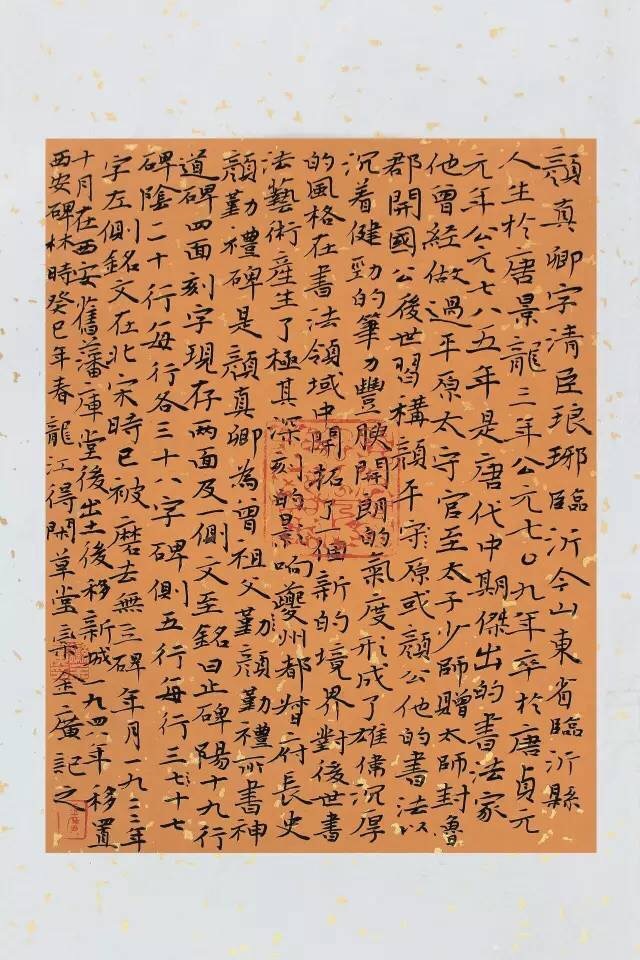 顏真卿字清臣琅琊臨沂今山東省臨沂縣
人生於唐景龍三年公元七〇九年卒於唐貞元
元年公元七八五年是唐代中期傑出的書法家
他曾經做過平原太守官至太子少師贈太師封魯
郡開國公後世習構顏平原或顏公他的書法以
沉着健勁的筆力豐腴開朗的氣度形成了雄偉沉厚
的風格在書法領域中開拓了個新的境界對後世書
法藝術産生了極其深刻的影响夔州都督府長史
顏勤禮碑是顏真卿為曾祖父勤顏勤禮所書神
道碑四面刻字現存两面及一側文至銘曰止碑陽十九行
碑陰二十行每行各三十八字碑側五行每行三七十七
字左側銘文在北宋時已被磨去無立碑年月一九二二年
十月在西安舊藩庫堂後出土後移新城一九四八年移置
西安碑林時癸巳年春龍江得閑草堂 廣記之